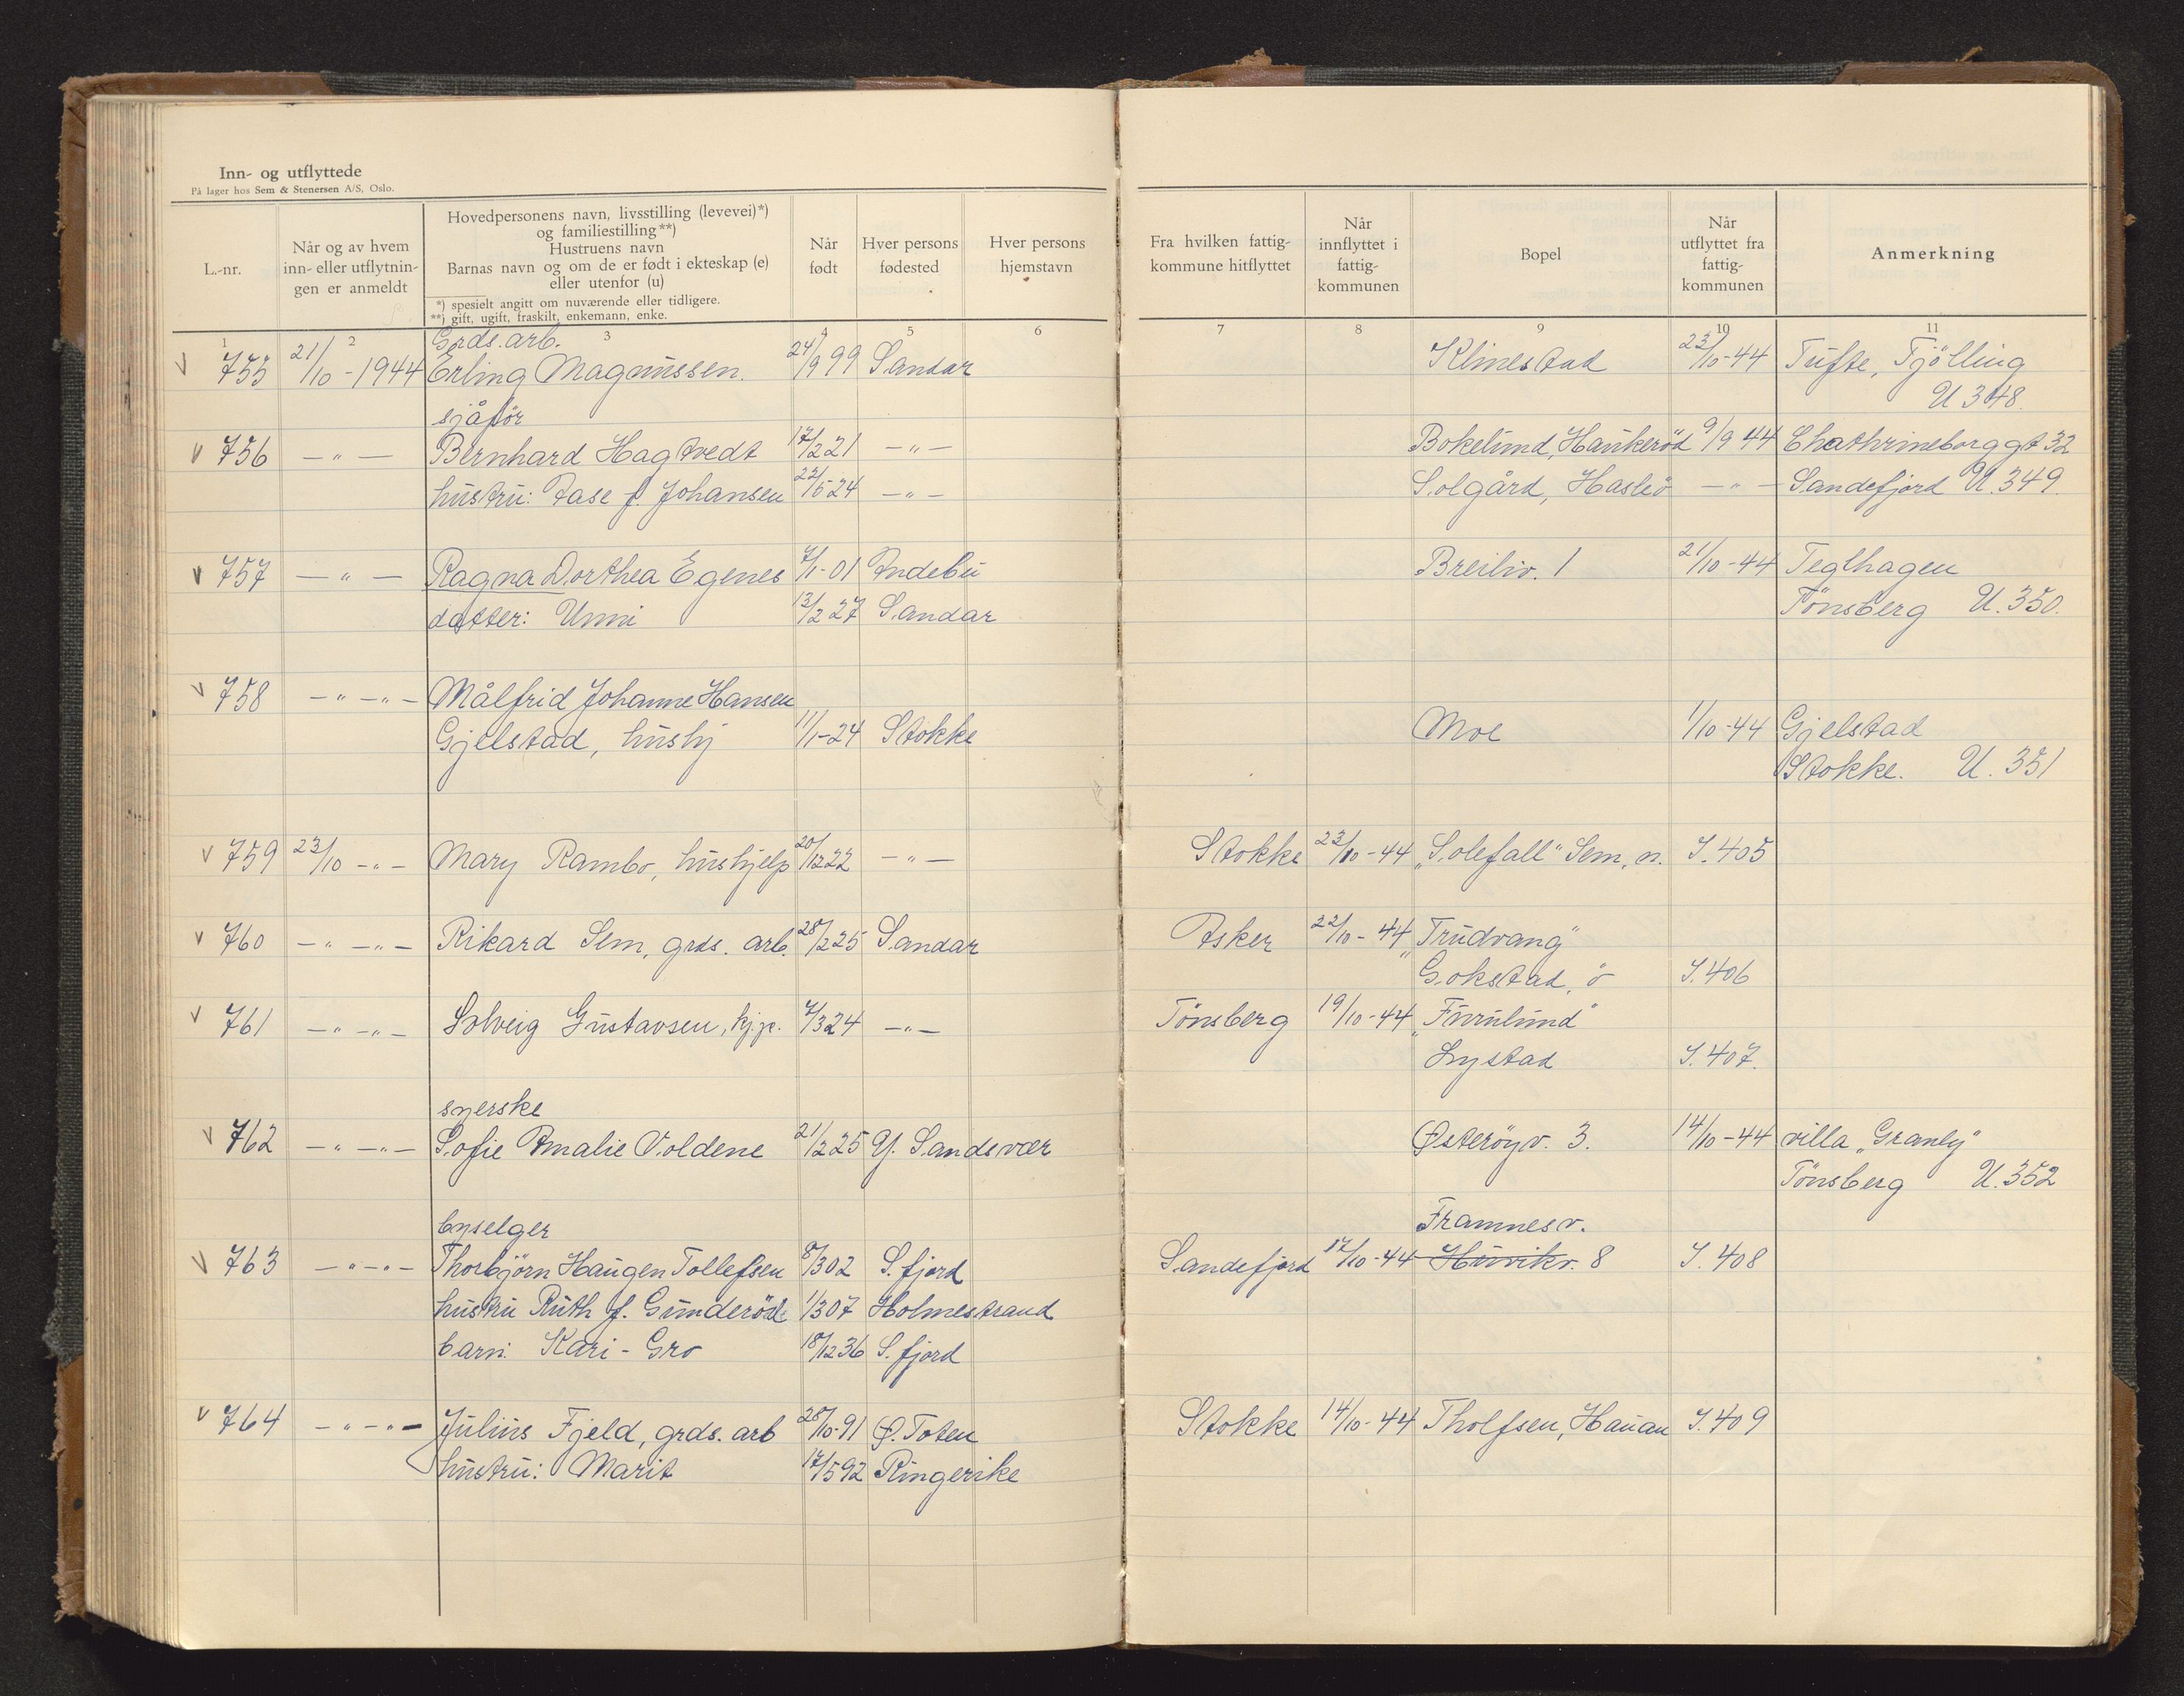 Inn- og utflyttede
På lager hos Sem & Stenersen A/S, Oslo.
L.-nr.
Når og av hvem inn- eller utflytnin-gen er anmeldt
Hovedpersonens navn, livsstilling (levevei)*)
og familiestilling**)
Hustruens navn
Barnas navn og om de er født i ekteskap (e)
eller utenfor (u)
*) spesielt angitt om nuværende eller tidligere.
**) gift, ugift, fraskilt, enkemann, enke.
Når født
Hver persons fødested
Hver persons hjemstavn
Fra hvilken fattig-kommune hitflyttet
Når innflyttet i fattig-kommunen
Bopel
Når utflyttet fra fattig-kommunen
Anmerkning
1 2 3 4 5 6 7 8 9 10 11
Grds. arb.
v 755 21/10-1944 Erling Magnussen. 24/9 99 Sandar Klinestad 23/10-44 Tufte, Tjölling
U 348.
sjåför
v 756 -"- Bernhard Hagtvedt 17/2 21 -"- Bokelund, Haukeröd 9/9 44 Chathrineborggt 32
hustru: Aase f. Johansen 22/5 24 -"- Solgård, Hasleö -"- Sandefjord U. 349.
v 757 -"- Ragna Dorthea Egenes 7/1-01 Andebu Breiliv. 1 21/10-44 Teglhagen
datter: Unni 13/2 27 Sandar Tönsberg U. 350.
v 758 -"- -"- Målfrid Johanne Hansen
Gjelstad, hushj 11/1-24 Stokke Moe 1/10-44 Gjelstad
Stokke. U. 351
v 759 23/10 -"- Mary Rambo, hushjelp 20/12 22 -"- Stokke 23/10-44 "Solefall" Sem, n. I. 405
v 760 -"- -"- Rikard Sem, grds. arb. 28/2 25 Sandar Asker 22/10-44 "Trudvang"
Gokstad, ö I. 406
v 761 -"- -"- Solveig Gustavsen, kjp. 7/3 24 -"- Tönsberg 19/10-44 "Furulund"
Lystad I. 407.
syerske
v 762 -"- -"- Sofie Amalie Voldene 21/2 25 Y. Sandsvær Østeröyv. 3. 14/10-44 villa "Granly"
Tönsberg U. 352
byselger Framnesv.
v 763 -"- -"- Thorbjörn Haugen Tollefsen 8/3 02 S. fjord Sandefjord 17/10-44 Huvikv. 8 I. 408
hustru Ruth f. Gunderöd 1/3 07 Holmestrand
barn: Kari-Gro 18/12 36 S. fjord
v 764 -"- -"- Julius Fjeld, grds. arb 28/10-91 Ø. Toten Stokke 14/10-44 Tholfsen, Hauan I. 409
hustru: Marit 17/5 92 Ringerike